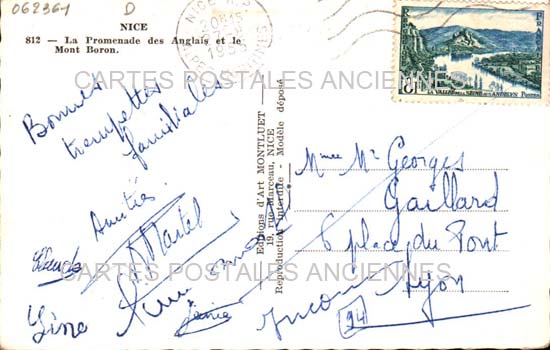 062361 D
NICE
812 — La Promenade des Anglais et le
Mont Boron.
NICE
1955
LA VALLÉE DE LA SEINE AUX ANDELYS POSTES
CARTES POSTALES ANCIENNES
Bonnes
trempettes
familiales
Amitiés
Martel
Claude
Line
Janie
Editions d'Art MONTLUET
19, rue Marceau, NICE
Reproduction interdite - Modèle déposé
Mme Mr Georges
Gaillard
6 place du Pont
Lyon
Inconnu
94
CARTES POSTALES ANCIENNES